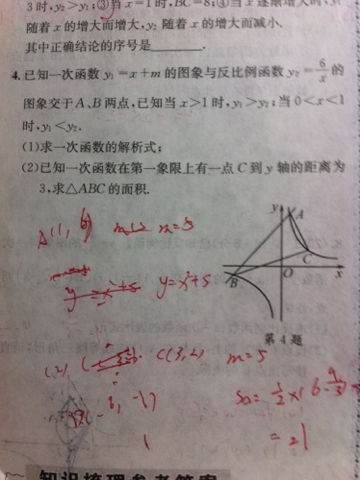 3时,y₂>y₁;③当x=1时,BC=8;④当x逐渐增大时,y₁
随着x的增大而增大,y₂随着x的增大而减小.
其中正确结论的序号是________.
4.已知一次函数y₁=x+m的图象与反比例函数y₂=6/x的
图象交于A、B两点,已知当x>1时,y₁>y₂;当0<x<1
时,y₁<y₂.
(1)求一次函数的解析式;
(2)已知一次函数在第一象限上有一点C到y轴的距离为
3,求△ABC的面积.
A(1, 6) m=5
y=x+5
(2) C(3,2) m=5
=21
y
A
C
B
O
x
第4题
知识梳理参考答案